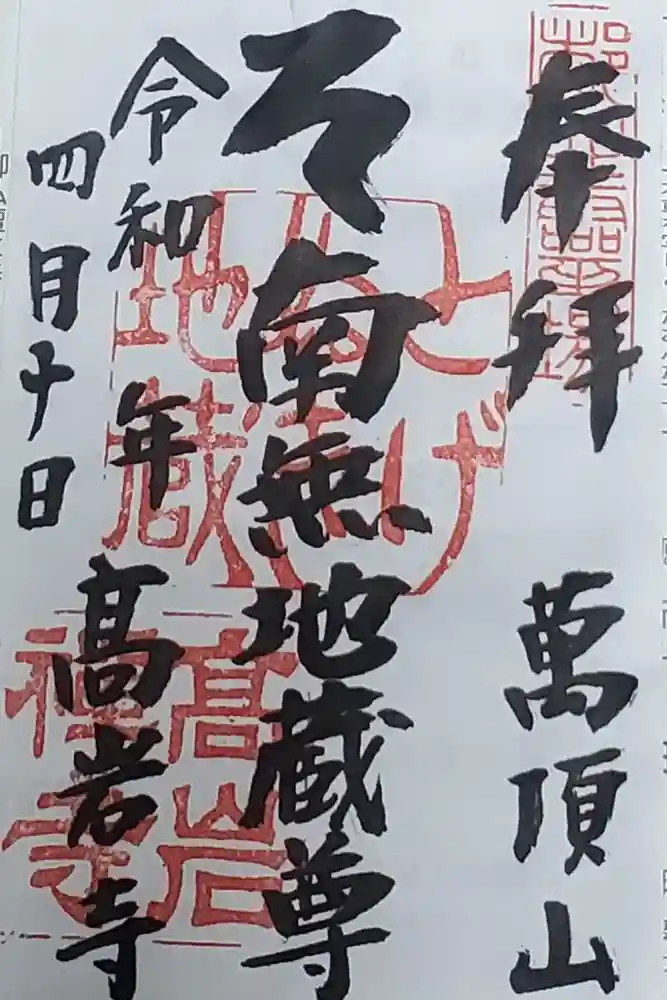 奉拝 萬頂山
南無地蔵尊
令和 年 髙岩寺
四月十日
とげぬき地蔵
髙岩禅寺